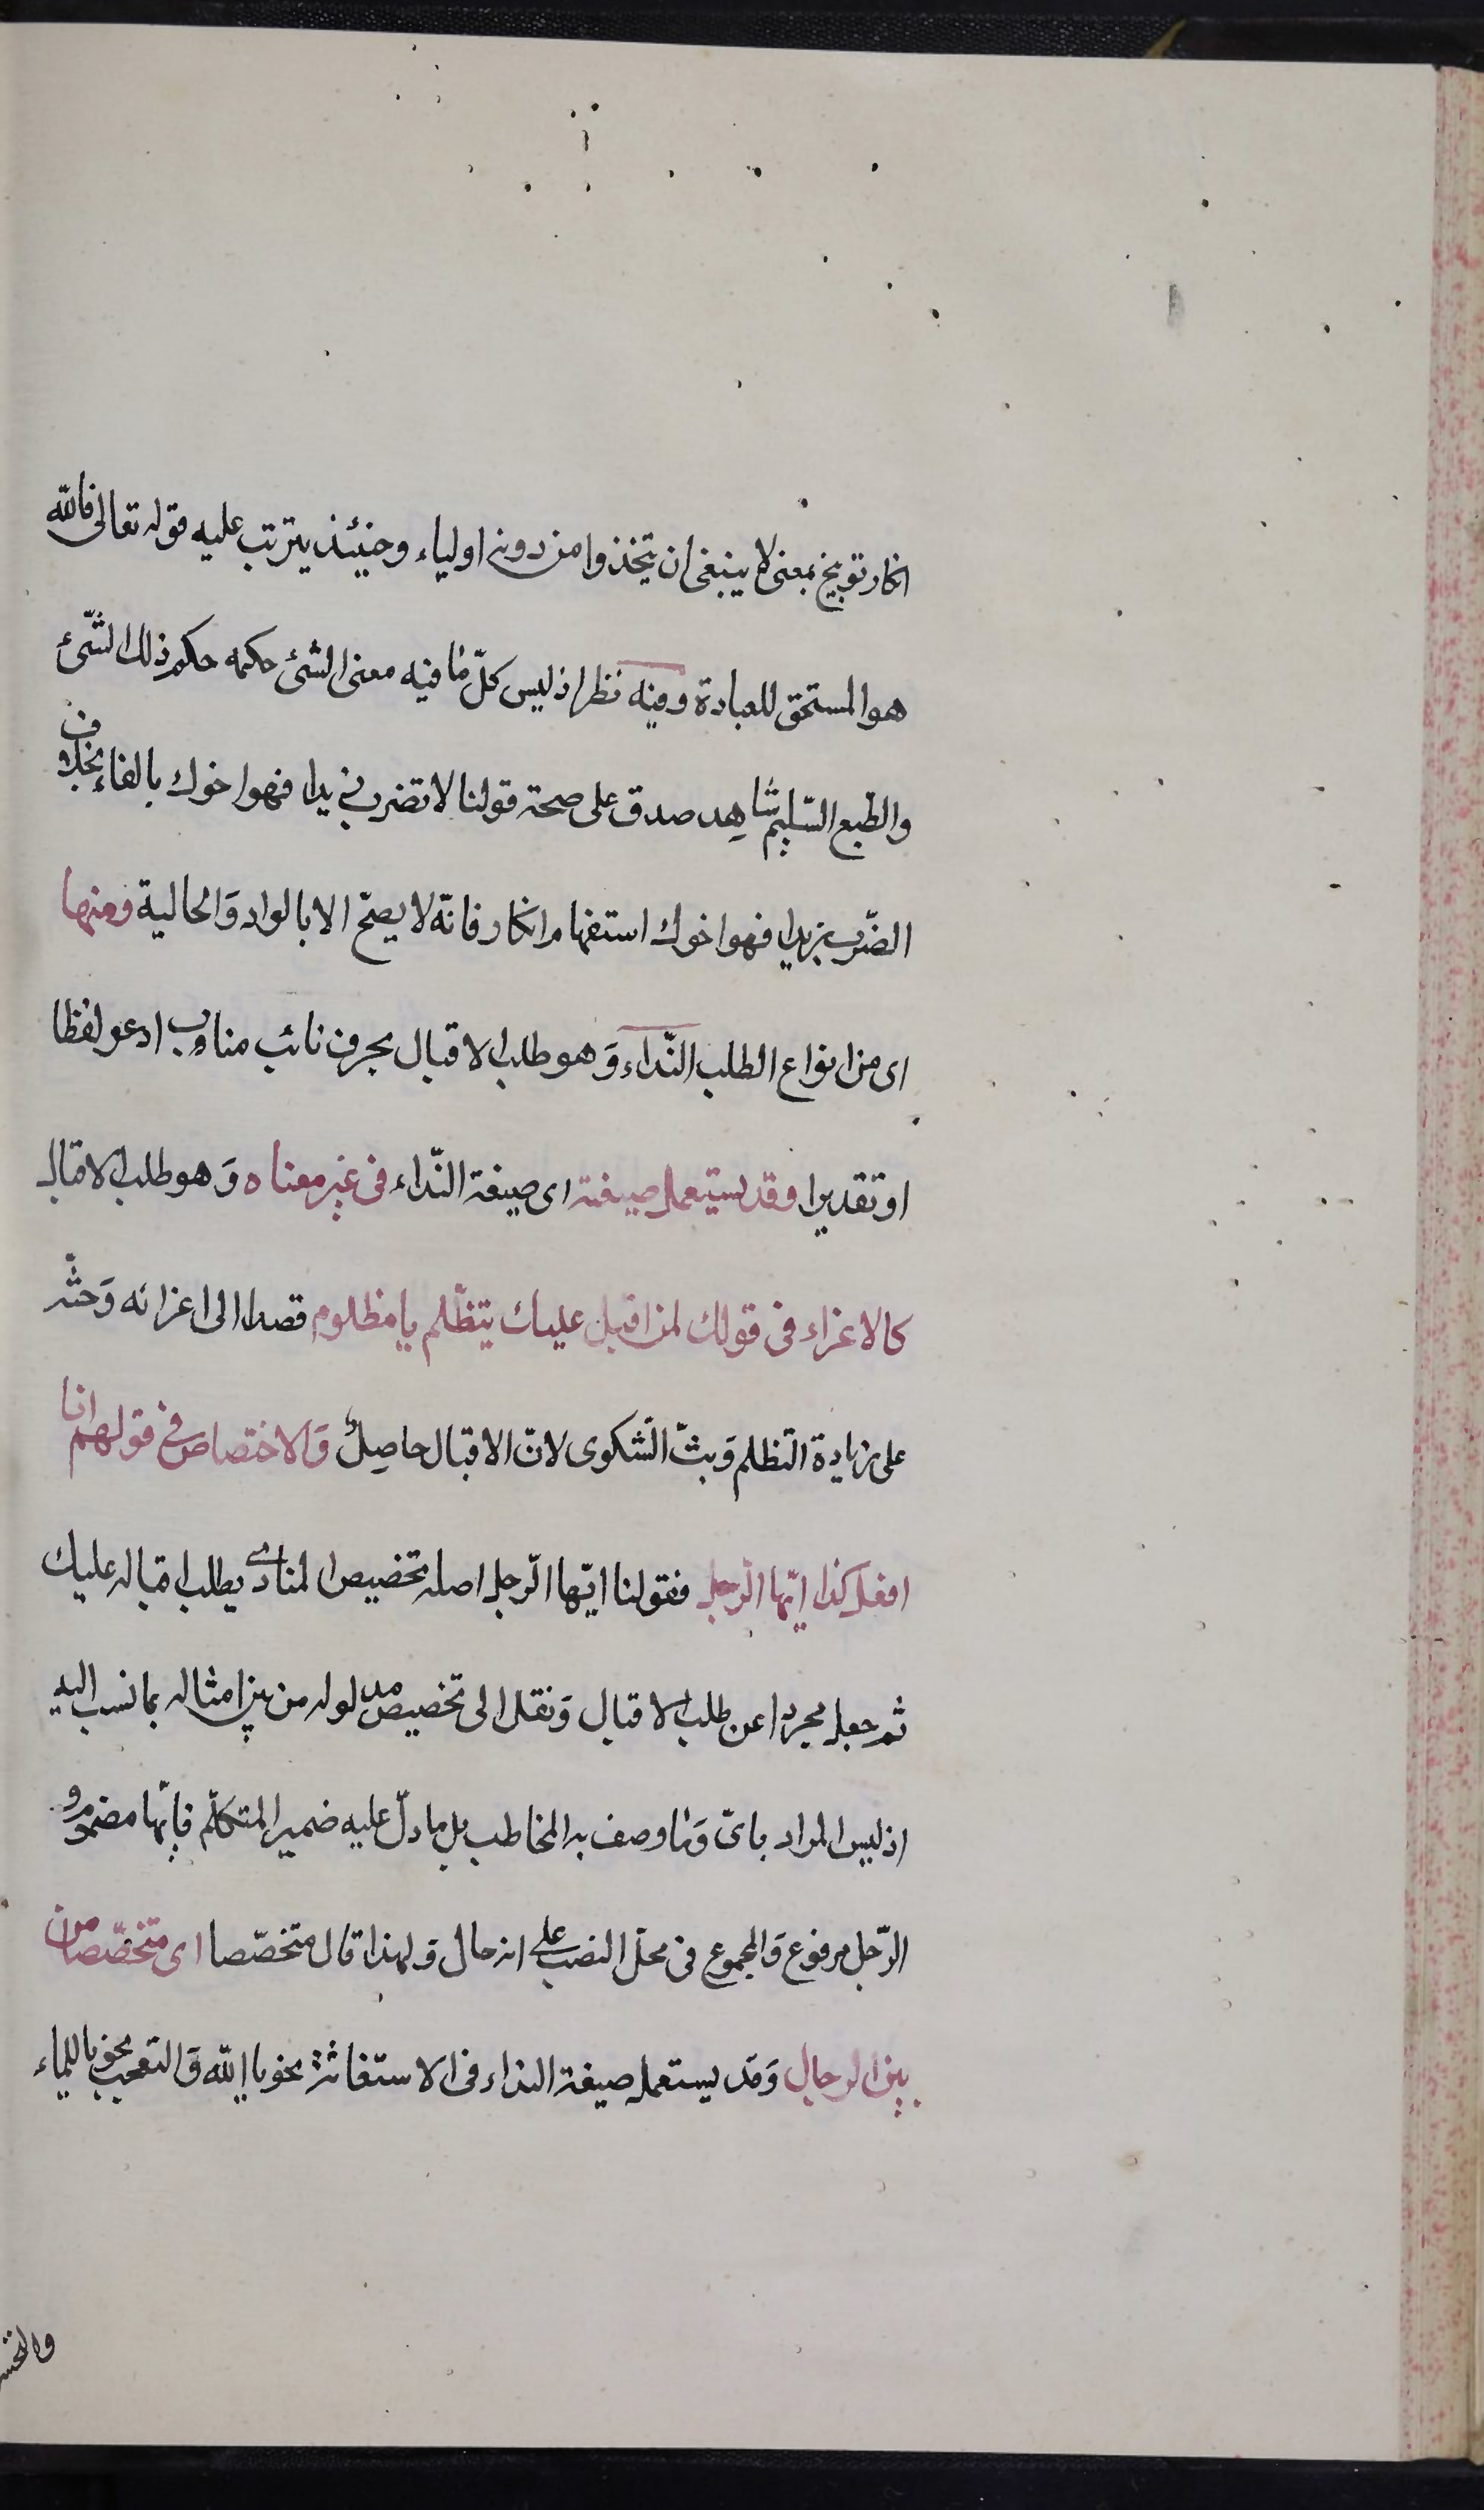 انكار توبيخ بمعنى لا ينبغى ان يتخذوا من دونه اولياء وحينئذ يترتب عليه قوله تعالى فالله
هو المستحق للعبادة وفيه نظر اذ ليس كلّ ما فيه معنى الشئ حكمه حكم ذلك الشّئ
والطّبع السّليم شاهد صدق على صحة قولنا لا تضرب زيدا فهو اخوك بالفاء بخلاف
اتضّرب زيدا فهو اخوك استفهام انكار فانّه لا يصحّ الا بالواو وَالحالية ومنها
اى من انواع الطلب النّداء وَهو طلب الاقبال بحرف نائب مناب ادعو لفظا
او تقديرا وقد يستعمل صيغته اى صيغة النّداء فى غير معناه وَهو طلب الاقبال
كالاغراء فى قولك لمن اقبل عليك يتظّلم يا مظلوم قصدا الى اغرائه وَحثّه
على زيادة التّظلم وَبثّ الشّكوى لانّ الاقبال حاصِلٌ وَالاختصاص فى قولهم انا
افعل كذا ايّها الرّجل فقولنا ايّها الرّجل اصله تخصيص المنادى يطلب اقباله عليك
ثم جعل مجردا عن طلب الاقبال وَنقل الى تخصيص مدلوله من بين امثاله بما نسب اليه
اذ ليس المراد باىّ وَما وصف به المخاطب بل ما دلّ عليه ضمير المتكلّم فايّها مضموم و
الرّجل مرفوع وَالمجموع فى محلّ النصب على انه حال وَلهذا قال متخصّصا اى متخصّصا من
بين الرجال وَقد يستعمل صيغة النداء فى الاستغاثة نحو يا الله وَالتعجب نحو يا للماء
والتحسر